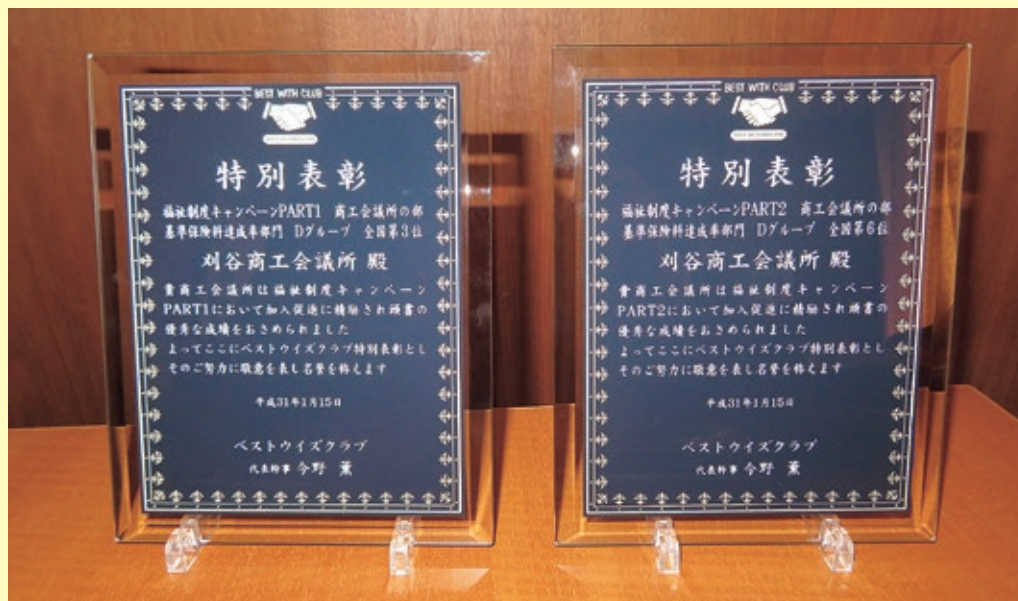 BEST WITH CLUB
特別表彰
福祉制度キャンペーンPART1 商工会議所の部
基準保険料達成率部門 Dグループ 全国第3位
刈谷商工会議所 殿
貴商工会議所は福祉制度キャンペーン
PART1において加入促進に精励され頭書の
優秀な成績をおさめられました
よってここにベストウイズクラブ特別表彰とし
そのご努力に敬意を表し名誉を称えます
平成31年1月15日
ベストウイズクラブ
代表幹事 今野 薫
BEST WITH CLUB
特別表彰
福祉制度キャンペーンPART2 商工会議所の部
基準保険料達成率部門 Dグループ 全国第6位
刈谷商工会議所 殿
貴商工会議所は福祉制度キャンペーン
PART2において加入促進に精励され頭書の
優秀な成績をおさめられました
よってここにベストウイズクラブ特別表彰とし
そのご努力に敬意を表し名誉を称えます
平成31年1月15日
ベストウイズクラブ
代表幹事 今野 薫